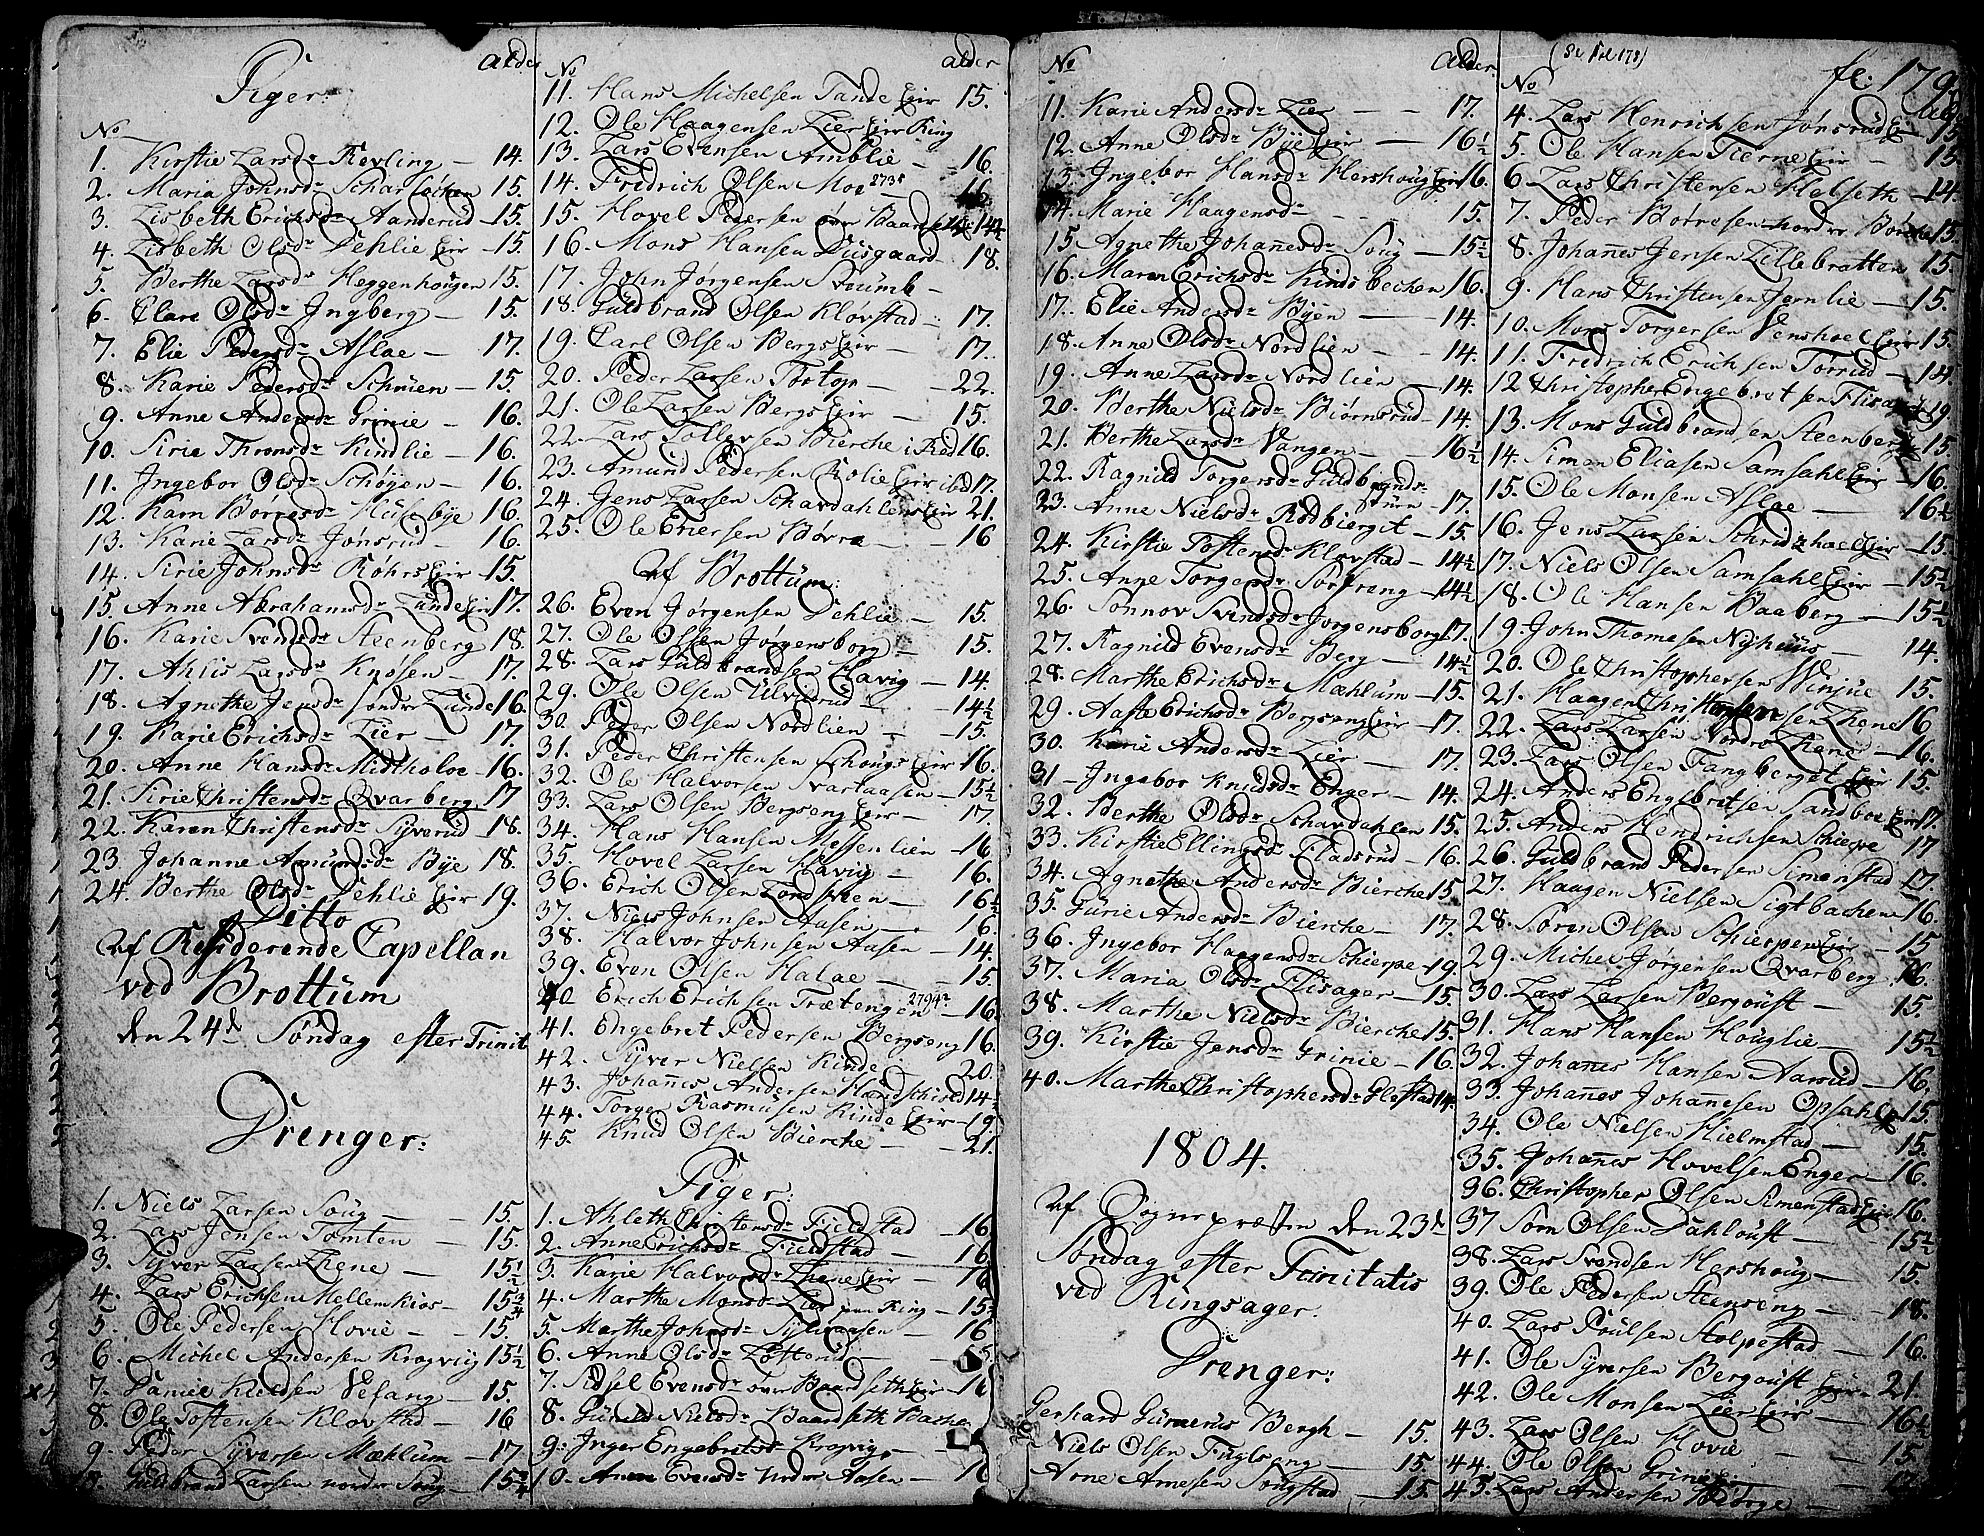 Piger:
Alder
No
1. Kirstie Larsdr Revling — 14.
2. Maria Johnsdr Scharløcken 15.
3. Lisbeth Erichsdr Aanderud — 15.
4. Lisbeth Olsdr Dehlie Eir — 15.
5. Berthe Larsdr Heggenhougen 15.
6. Clare Olsdr Ingberg — 15.
7. Elie Pedersdr Aslae — 17.
8. Karie Pedersdr Schuien — 15.
9. Anne Andersdr Grinie — 16.
10. Sirie Thronsdr Kindlie — 16.
11. Ingebor Olsdr Schøyen — 16.
12. Karn Børresdr Huusebye 16.
13. Karie Larsdr Jønsrud — 16.
14. Sirie Johnsdr Røhrs Eir — 15.
15. Anne Abrahamsdr Lunde Eir 17.
16. Karie Svendsdr Steenberg 18.
17. Ahlis Larsdr Knøsen — 17.
18. Agnethe Jensdr søndre Lunde 16.
19. Karie Erichsdr Lier — 17.
20. Anne Hansdr Midtholoe — 16.
21. Sirie Christensdr Qvarberg 17
22. Karen Christensdr Syverud — 18.
23 Johanne Amundsdr Bye 18.
24. Berthe Olsdr Dehlie Eir 19.
Ditto
Af Residerende Capellan
ved Brottum
den 24d Søndag efter Trinit
Drenger:
1. Niels Larsen Soug — 15.
2. Lars Jensen Tomten — 15.
3. Syver Larsen Lhene — 15 1/2
4. Lars Erichsen Mellem Kios — 15 3/4
5. Ole Pedersen Hovie — 15.
6. Michel Andersen Krogviig 15 1/2
7. Daniel Kieldsen Vefang — 15.
8. Ole Tostensen Kløvstad — 16
9. Peder Syversen Mæhlum — 17
10. Guldbrand Larsen nordre Soug — 15 3/4
No
alder
11. Hans Michelsen Tande Eir 15.
12. Ole Haagensen Lier Eir Ring
13. Lars Evensen Amblie — 16.
14. Fridrich Olsen Moe 16.
15. Hovel Pedersen øvre Baardseth 14 1/2
16. Mons Hansen Duusgaard 18.
17. John Jørgensen Svumb —
18. Guldbrand Olsen Kløvstad — 17.
19. Carl Olsen Bergs Eir — 17.
20. Peder Larsen Tortop — 22.
21. Ole Larsen Bergs Eir — 15.
22. Lars Tollevsen Bierche i Red 16.
23. Amund Pedersen Rolie Eir ibid 17.
24. Jens Larsen Schardahlens Eir 21.
25. Ole Eriersen Børre — 16
Af Brottum:
26. Even Jørgensen Dehlie — 15.
27. Ole Olsen Jørgensborg — 15.
28. Lars Guldbrandsen Havig — 14.
29. Ole Olsen Ulverud — 14 1/2
30. Peder Olsen Nordlien — 15.
31. Peder Christensen Schougs Eir 16.
32. Ole Halvorsen Svartaasen — 15 1/2
33. Lars Olsen Bergseng Eir — 17.
34. Hans Hansen Messenlien — 16
35. Hovel Larsen Havig — 16.
36. Erich Olsen Lordsveen — 16 1/2
37. Niels Johnsen Aasen — 16.
38. Halvor Johnsen Aasen — 14.
39. Even Olsen Halae — 15.
40 Erich Erichsen Trætengen — 16.
41. Engebret Pedersen Bergseng 16.
42. Syver Nielsen Kinde — 20.
43. Johan̄es Andersen Hændschiold 14 1/2
44. Torger Rasmusen Kinde Eir — 19.
45. Knud Olsen Bierche — 21.
Piger:
1. Ahleth Christensdr Fieldstad — 16
2. Anne Erichsdr Fieldstad — 16
3. Karie Halvorsdr Lhene Eir — 16
4. Marthe Monsdr Lier paa Ring — 15 1/2
5. Marthe Johnsdr Sylvaasen — 16
6. Anne Olsdr Løtterud — 15.
7. Sidsel Evensdr øvre Baardseth Eir — 16
8. Gunild Nielsdr Baardseth Bache
9. Inger Engebretsdr Krogvig —
10. Anne Evensdr Nordre Aasen — 16
No
Alder.
11. Karie Andersdr Lier — 17.
12. Anne Olsdr Bye Eir — 16 1/2
13. Ingebor Hansdr Hershoug Eir 16.
14. Marie Haagensdr — 15.
15. Agnethe Johan̄esdr Soug — 15 1/2
16. Maren Erichsdr Kindsbechen 16.
17. Elie Andersdr Byen — 14.
18. Anne Olsdr Nordlien — 14.
19. Anne Larsdr Nordlien — 14.
20. Berthe Nielsdr Biørnsrud — 14.
21. Berthe Larsdr Vangen — 16 1/2
22. Ragnild Torgersdr Guldbrands-
stuen — 17.
23. Anne Nielsdr Rødbierget — 15.
24. Kirstie Tostensdr Kløvstad — 14 1/2
25. Anne Torgersdr Sorprong — 14 1/2
26. Sønnov Svendsdr Jørgensborg 17.
27. Ragnild Evensdr Berg — 14 1/2
28. Marthe Erichsdr Mæhlum — 15.
29. Aaste Erichsdr Bergseng Eir — 17.
30. Karie Andersdr Lier — 17.
31 — Ingebor Knudsdr Enger — 14.
32. Berthe Olsdr Schardahlen 15.
33. Kirstie Ellingsdr Fladsrud — 16.
34. Agnethe Andersdr Bierche 15
35. Gurie Andersdr Bierche — 17.
36. Ingebor Haagensdr Schierpe — 19.
37. Maria Olsdr Flisager — 15.
38. Marthe Nielsdr Bierche 15.
39. Kirstie Jensdr Grinie — 16.
40. Marthe Christophersdr Glestad 14.
1804.
Af Sognepræsten den 23d
Søndag efter Trinitatis
ved Ringsager.
Drenger:
Gerhard Gunerius Bergh — 15.
Niels Olsen Finglseng — 15
Arne Arnesen Songstad — 15.
(Se Fol 178)
fl: 179.
Alder
No
4. Lars Henrichsen Jønsrud Eir — 15.
5. Ole Hansen Tierne Eir — 15.
6. Lars Christensen Helseth — 14.
7. Peder Børresen nordre Børche 15.
8. Johan̄es Jensen Lillebratten 15.
9. Hans Christensen Jernlie — 15.
10. Mons Torgersen Venshoel Eir 15.
11. Fredrich Erichsen Torrud — 14
12 Christopher Engebretsen Flisager Eir 19
13. Mons Guldbrandsen Steenberg 15.
14. Simon Eliasen Samsahl Eir — 16.
15. Ole Monsen Aslae — 16 1/2
16. Jens Larsen Schrudshoel Eir — 15.
17. Niels Olsen Samsahl Eir — 15 1/2
18. Ole Hansen Baaberg — 15 1/2
19. John Thomesen Nyhuus — 14.
20. Ole Christophersen Winjue 15.
21. Haagen Christiansen Lhene 16
22. Lars Larsen Nordre Lhene — 16.
23. Lars Olsen Fangberget Eir 15.
24. Anders Engebretsen Sandboe Eir 17.
25. Anders Hendrichsen Schierpe 17
26. Guldbrand Pedersen Simenstad 17.
27. Haagen Nielsen Sigtbachen 16.
28. Søren Olsen Schierpen Eir — 15
29. Michel Jørgensen Qvarberg 16.
30. Lars Larsen Bergoust — 15.
31. Hans Hansen Houglie — 15 1/2
32. Johan̄es Hansen Aarsud — 16.
33. Johan̄es Johan̄esen Opsahl 15.
34. Ole Nielsen Hielmstad — 15.
35. Johan̄es Hovelsen Enger — 16
36. Christopher Olsen Simenstad Eir 16.
37 Søm Olsen Dahloust — 15 1/2
38. Lars Svendsen Hershoug — 15.
39. Ole Pedersen Steenseng — 18.
40. Lars Poulsen Stolpestad — 16.
41. Ole Syversen Bergoust Eir 21.
42. Ole Monsen Lier Eir — 16 1/2
43. Lars Olsen Hovie — 15
44. Ole Olsen Grinie Eir — 17.
45. Lars Andersen Børge —